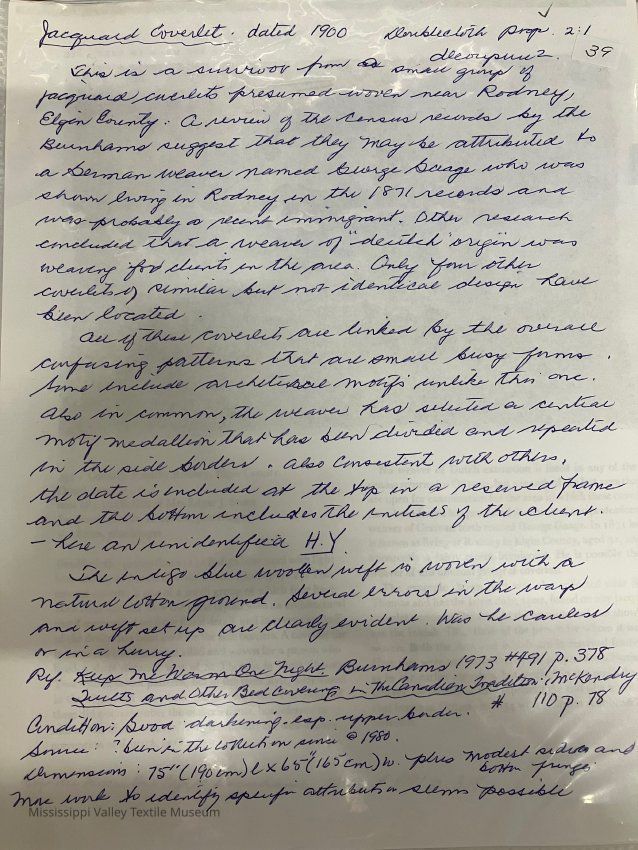 Jacquard Coverlet. dated 1900 Doublecloth prop. 2:1
decoupure 2. 39
This is a survivor from a small group of
jacquard coverlets presumed woven near Rodney,
Elgin County. A review of the census records by the
Burnhams suggest that they may be attributed to
a German weaver named George Gaage who was
shown living in Rodney in the 1871 records and
was probably a recent immigrant. Other research
concluded that a weaver of "deutch" origin was
weaving for clients in the area. Only four other
coverlets of similar but not identical design have
been located.
All of these coverlets are linked by the overall
confusing patterns that are small busy forms.
Some include architectural motifs unlike this one.
Also in common, the weaver has selected a central
motif medallion that has been divided and repeated
in the side borders. Also consistent with others,
the date is included at the top in a reserved frame
and the bottom includes the initials of the client.
- here an unidentified H.Y.
The indigo blue woolen weft is woven with a
natural cotton ground. Several errors in the warp
and weft set up are clearly evident. Was he careless
or in a hurry.
Rf. Keep Me Warm One Night. Burnhams 1973 #491 p. 378
Quilts and Other Bed Coverings in The Canadian Tradition: McKendry
# 110 p. 78
Condition: Good. darkening. esp. upper border.
Source: ? been in the collection since @ 1980.
Dimensions: 75" (190cm) L x 65" (165cm) w. plus modest sides and
bottom fringe
More work to identify specific attribution seems possible
Mississippi Valley Textile Museum